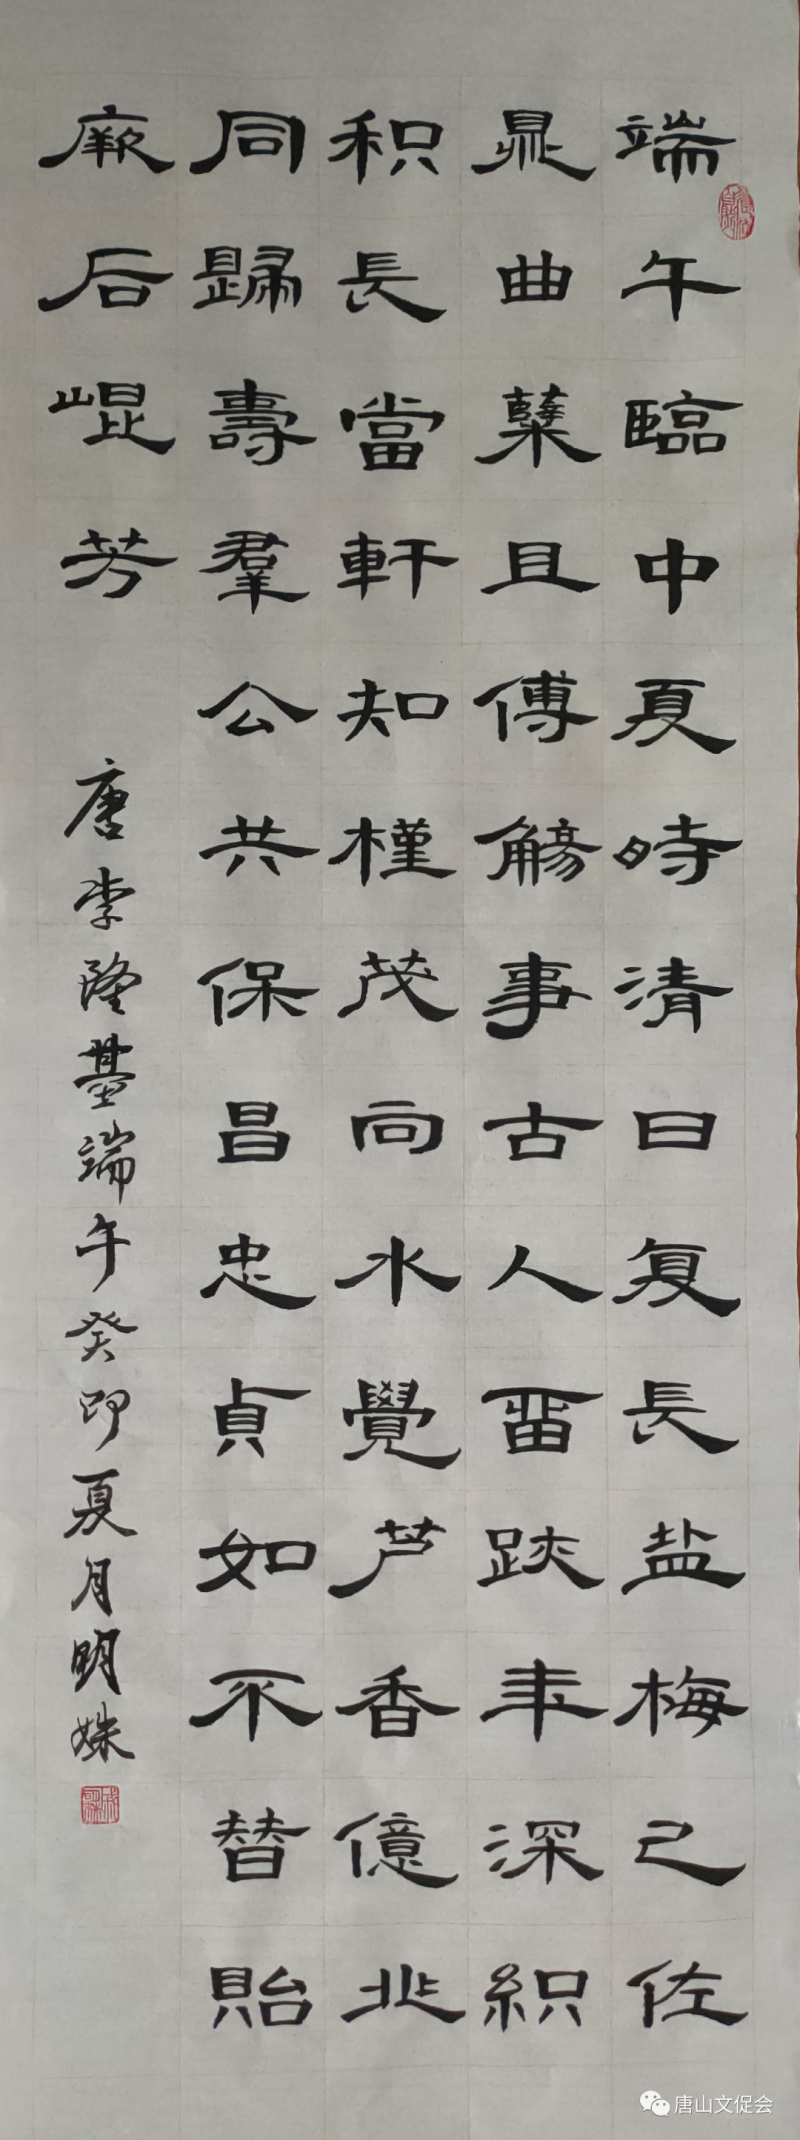 端午臨中夏時清日复長盐梅已佐
鼎曲糵且傅觞事古人畱跡年深织
积長當軒知槿茂向水覺芦香億兆
同歸壽羣公共保昌忠貞如不替貽
厥后崐芳
唐李隆基端午癸卯夏月明姝
唐山文促会